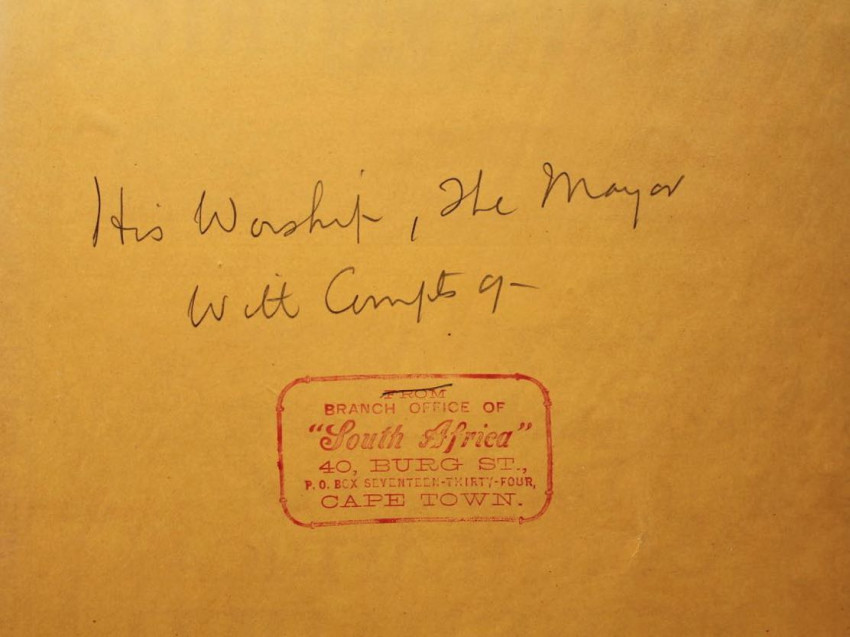 His Worship, The Mayor
With Compts of—
FROM
BRANCH OFFICE OF
"South Africa"
40, BURG ST.,
P. O. BOX SEVENTEEN-THIRTY-FOUR,
CAPE TOWN.